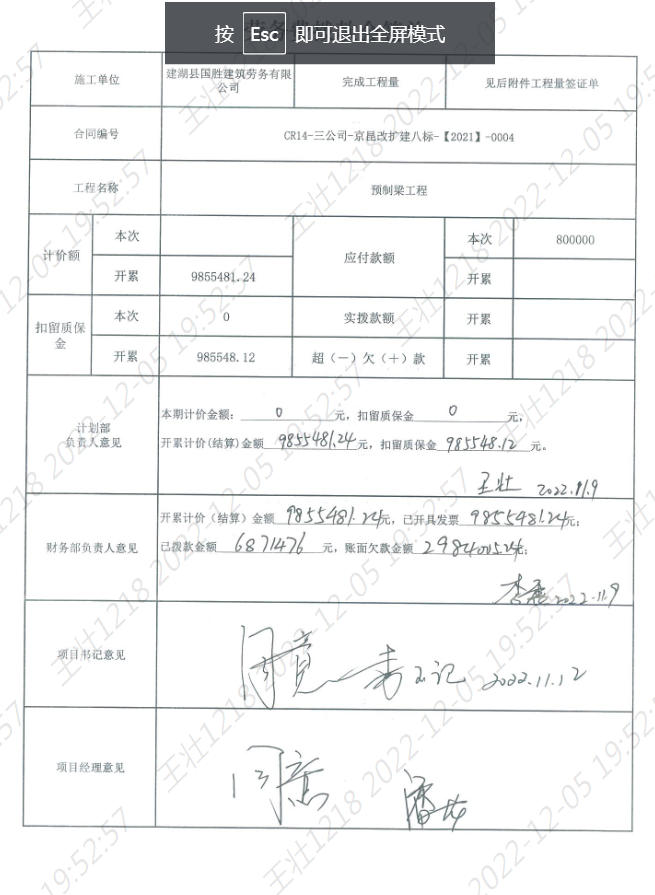 按 Esc 即可退出全屏模式
施工单位 建湖县国胜建筑劳务有限公司 完成工程量 见后附件工程量签证单
合同编号 CR14-三公司-京昆改扩建八标-【2021】-0004
工程名称 预制梁工程
计价额 本次 应付款额 本次 800000
开累 9855481.24 开累
扣留质保金 本次 0 实拨款额 开累
开累 985548.12 超（—）欠（+）款 开累
计划部
负责人意见
本期计价金额： 0 元，扣留质保金 0 元，
开累计价(结算)金额 9855481.24 元，扣留质保金 985548.12 元。
王壮 2022.11.9
财务部负责人意见
开累计价（结算）金额 9855481.24 元，已开具发票 9855481.24 元；
已拨款金额 6871476 元，账面欠款金额 2984005.24 元；
2022.11.9
项目书记意见
同意 2022.11.12
项目经理意见
同意
王壮1218 2022-12-05 19:52:57